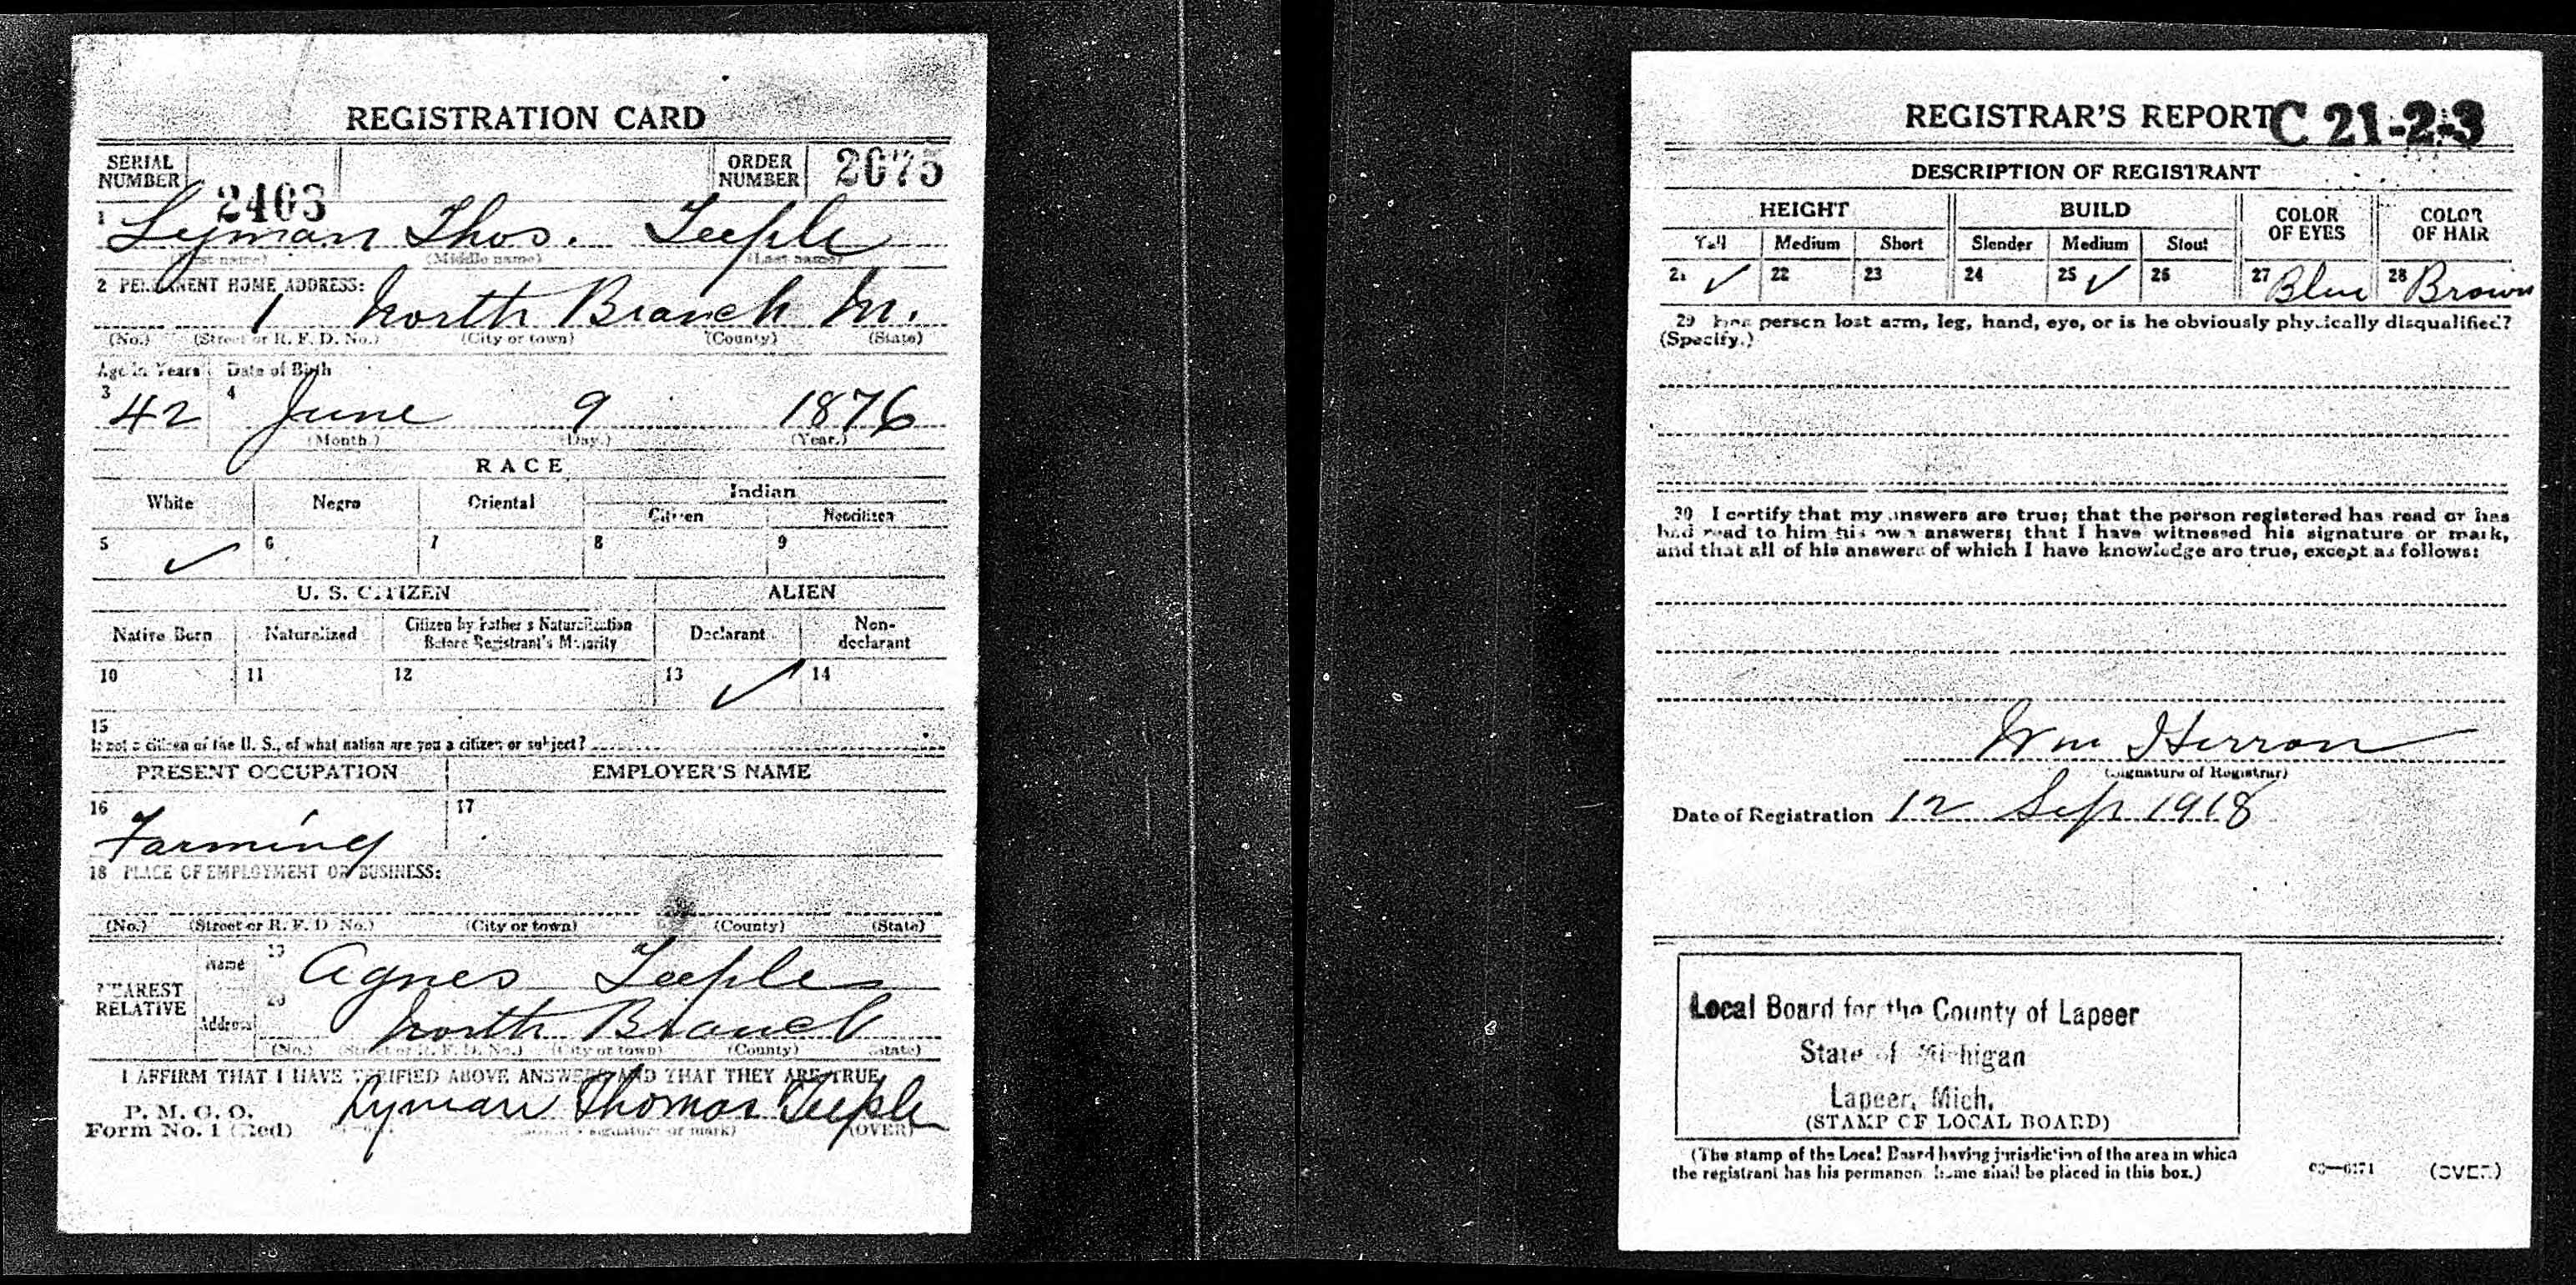 REGISTRATION CARD
SERIAL NUMBER 2403 ORDER NUMBER 2075
1 Lyman Thos. Teeple
(First name) (Middle name) (Last name)
2 PERMANENT HOME ADDRESS:
1 North Branch M.
(No.) (Street or R. F. D. No.) (City or town) (County) (State)
Age in Years Date of Birth
3 42 4 June 9 1876
(Month.) (Day.) (Year.)
RACE
White Negro Oriental Indian
Citizen Noncitizen
5 ✓ 6 7 8 9
U. S. CITIZEN ALIEN
Native Born Naturalized Citizen by Father's Naturalization Before Registrant's Majority Declarant Non-declarant
10 11 12 13 ✓ 14
15
If not a citizen of the U. S., of what nation are you a citizen or subject?
PRESENT OCCUPATION EMPLOYER'S NAME
16 Farming 17
18 PLACE OF EMPLOYMENT OR BUSINESS:
(No.) (Street or R. F. D. No.) (City or town) (County) (State)
NEAREST RELATIVE Name 19 Agnes Teeple
Address 20 North Branch
(No.) (Street or R. F. D. No.) (City or town) (County) (State)
I AFFIRM THAT I HAVE VERIFIED ABOVE ANSWERS AND THAT THEY ARE TRUE
P. M. G. O.
Form No. 1 (Red) Lyman Thomas Teeple
signature or mark) (OVER)
REGISTRAR'S REPORT C 21-2-3
DESCRIPTION OF REGISTRANT
HEIGHT BUILD COLOR OF EYES COLOR OF HAIR
Tall Medium Short Slender Medium Stout
21 ✓ 22 23 24 25 ✓ 26 27 Blue 28 Brown
29 Has person lost arm, leg, hand, eye, or is he obviously physically disqualified?
(Specify.)
30 I certify that my answers are true; that the person registered has read or has
had read to him his own answers; that I have witnessed his signature or mark,
and that all of his answers of which I have knowledge are true, except as follows:
Wm Herron
(Signature of Registrar)
Date of Registration 12 Sep 1918
Local Board for the County of Lapeer
State of Michigan
Lapeer, Mich.
(STAMP OF LOCAL BOARD)
(The stamp of the Local Board having jurisdiction of the area in which
the registrant has his permanent home shall be placed in this box.)
03—6171 (OVER)